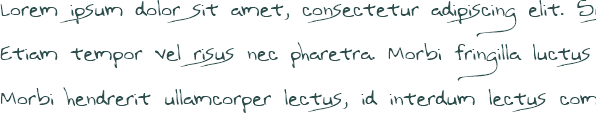 Lorem ipsum dolor sit amet, consectetur adipiscing elit.
Etiam tempor vel risus nec pharetra. Morbi fringilla luctus
Morbi hendrerit ullamcorper lectus, id interdum lectus com